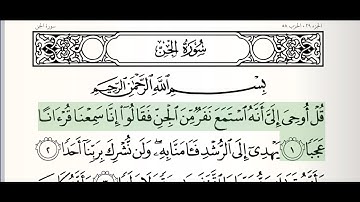 الجزء ٢٩ ، الحزب ٥٨ سورة الجن
سُورَةُ الجِنِّ
بِسْمِ اللَّهِ الرَّحْمَٰنِ الرَّحِيمِ
قُلْ أُوحِيَ إِلَيَّ أَنَّهُ اسْتَمَعَ نَفَرٌ مِّنَ الْجِنِّ فَقَالُوا إِنَّا سَمِعْنَا قُرْءَانًا
عَجَبًا ١ يَهْدِي إِلَى الرُّشْدِ فَـَٔامَنَّا بِهِ وَلَن نُّشْرِكَ بِرَبِّنَا أَحَدًا ٢